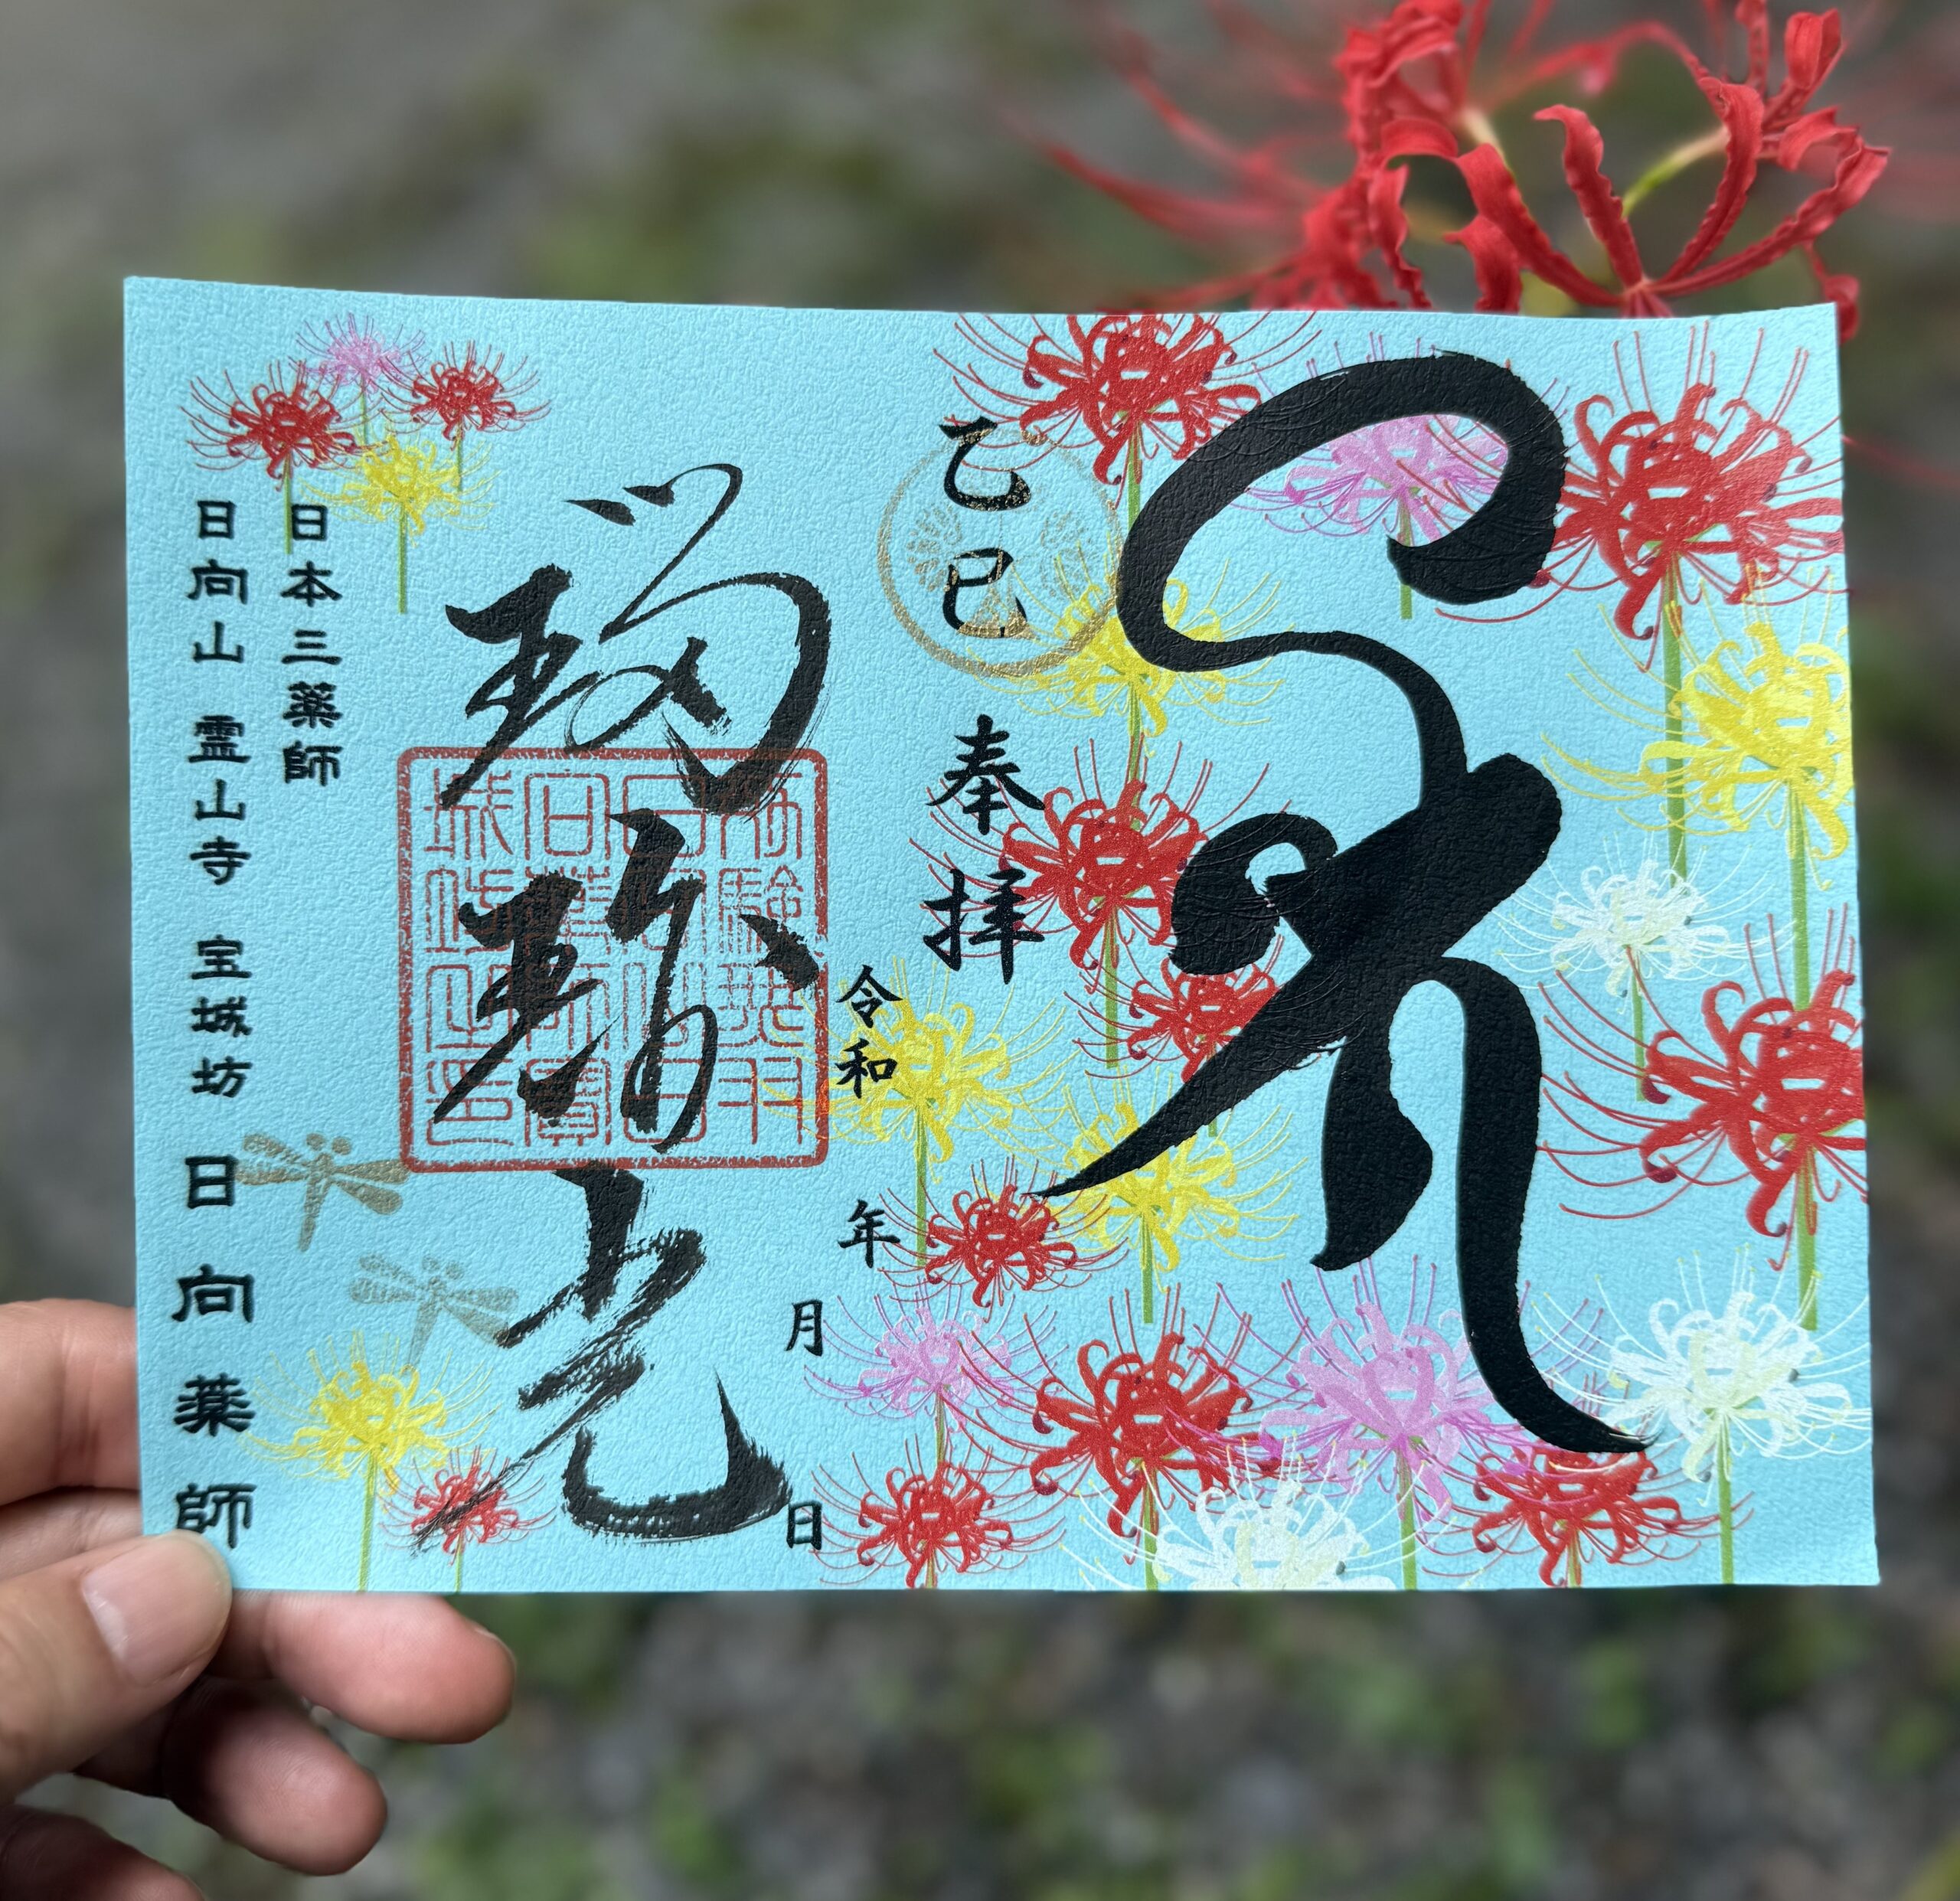 乙巳
奉拝
令和 年 月 日
瑠璃光
日本三薬師
日向山 霊山寺 宝城坊 日向薬師